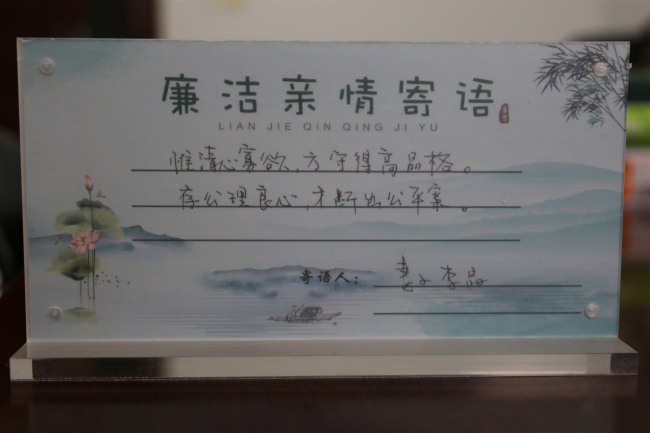 廉洁亲情寄语
LIAN JIE QIN QING JI YU
惟清心寡欲,方守得高品格。
存公理良心,才断出公平案。
寄语人:妻子 李晶